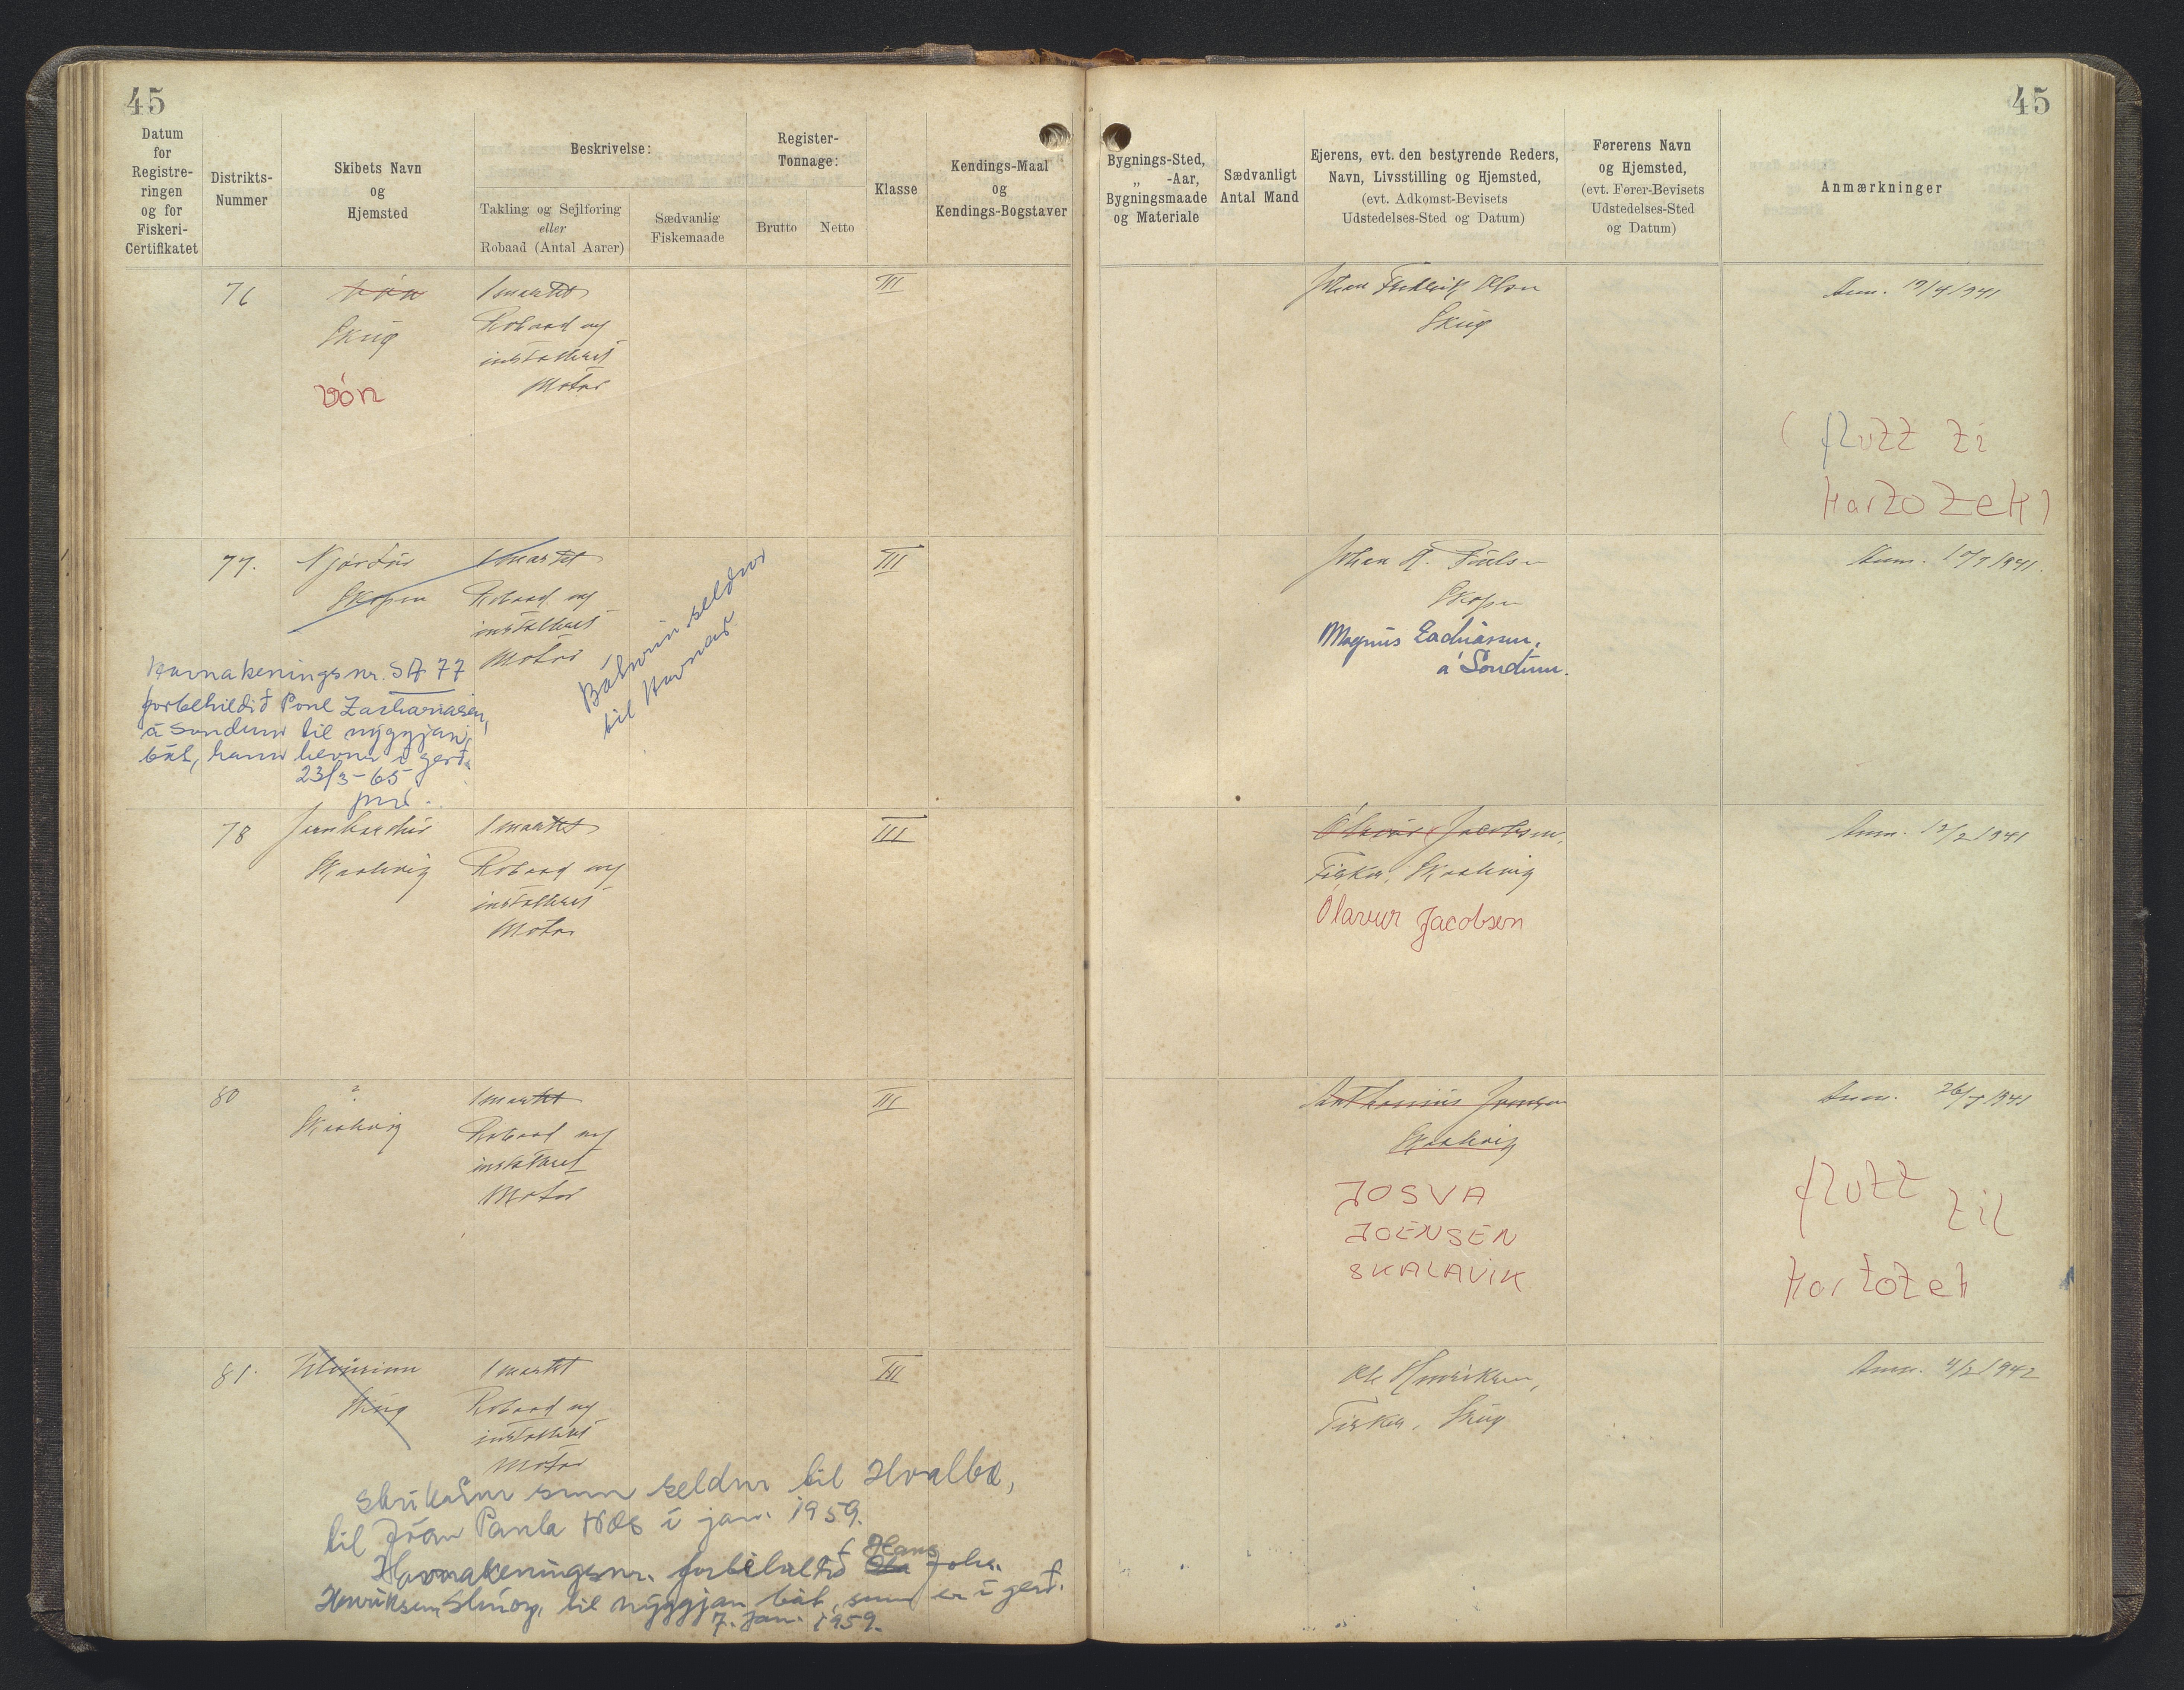 45
45
Datum
for
Registre-
ringen
og for
Fiskeri-
Certifikatet
Distrikts-
Nummer
Skibets Navn
og
Hjemsted
Beskrivelse:
Takling og Sejlføring
eller
Robaad (Antal Aarer)
Sædvanlig
Fiskemaade
Register-
Tonnage:
Brutto
Netto
Klasse
Kendings-Maal
og
Kendings-Bogstaver
Bygnings-Sted,
„ -Aar,
Bygningsmaade
og Materiale
Sædvanligt
Antal Mand
Ejerens, evt. den bestyrende Reders,
Navn, Livsstilling og Hjemsted,
(evt. Adkomst-Bevisets
Udstedelses-Sted og Datum)
Førerens Navn
og Hjemsted,
(evt. Fører-Bevisets
Udstedelses-Sted
og Datum)
Anmærkninger
76
Vón
Skúø
vón
1 mastet
Robaad m/
installeret
Motor
III
Johan Fredrik Olsen
Skúø
Anm. 19/4 1941
(flutt ti
kartotek)
77.
Njørður
Skopen
1 mastet
Robaad m/
installeret
Motor
Báturin seldur
til Havnar
III
Havnakenningsnr. SA 77
forbehildið Poul Zachariasen,
á Sondum til nýggjan
bát, hann hevur í gerð.
23/3-65
Johan A. Poulsen
Skopen
Magnus Zachriasen,
á Sondum.
Anm. 10/7 1941.
78
Skaalavig
1 mastet
Robaad m/
installeret
Motor
III
Ólavur Jacobsen,
Fisker, Skaalavig
Ólavur Jacobsen
Anm. 12/2 1941
80
?
Skaalavig
1 mastet
Robaad m/
installeret
Motor
III
Joensen
Skaalavig
JOSVA
JOENSEN
SKALAVIK
Anm. 26/7 1941
flutt til
kartotek
81.
Skúø
1 mastet
Robaad m/
installeret
Motor
III
Ole Henriksen,
Fisker, Skúø
Anm. 4/2 1942
strikaður sum seldur til Hvalba,
til Jóan Paula Næs í jan. 1959.
Havnakenningsnr. forbihaldið Hans Johs.
Henriksen, Skúoy, til nýggjan bát, sum er í gerð.
7. Jan. 1959.